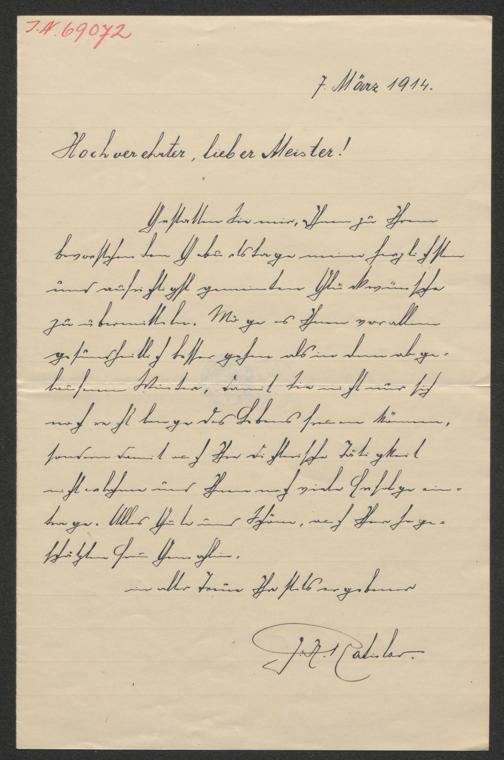 J.N. 69072
7. März 1914.
Hochverehrter, lieber Meister!
Gestatten Sie mir, Ihnen zu Ihrem
bevorstehenden Geburtstage meine herzlichsten
und aufrichtigst gemeinten Glückwünsche
zu übermitteln. Möge es Ihnen vor allem
gesundheitlich besser gehen als in dem abge-
laufenen Winter, damit Sie nicht nur sich
noch recht lange des Lebens freuen können,
sondern damit auch Ihre dichterische Tätigkeit
nicht erlahme und Ihnen noch viele Erfolge ein-
trage. Alles Gute und Schöne, auch Ihrer hochge-
schätzten Frau Gemahlin.
in alter Treue Ihr stets ergebener